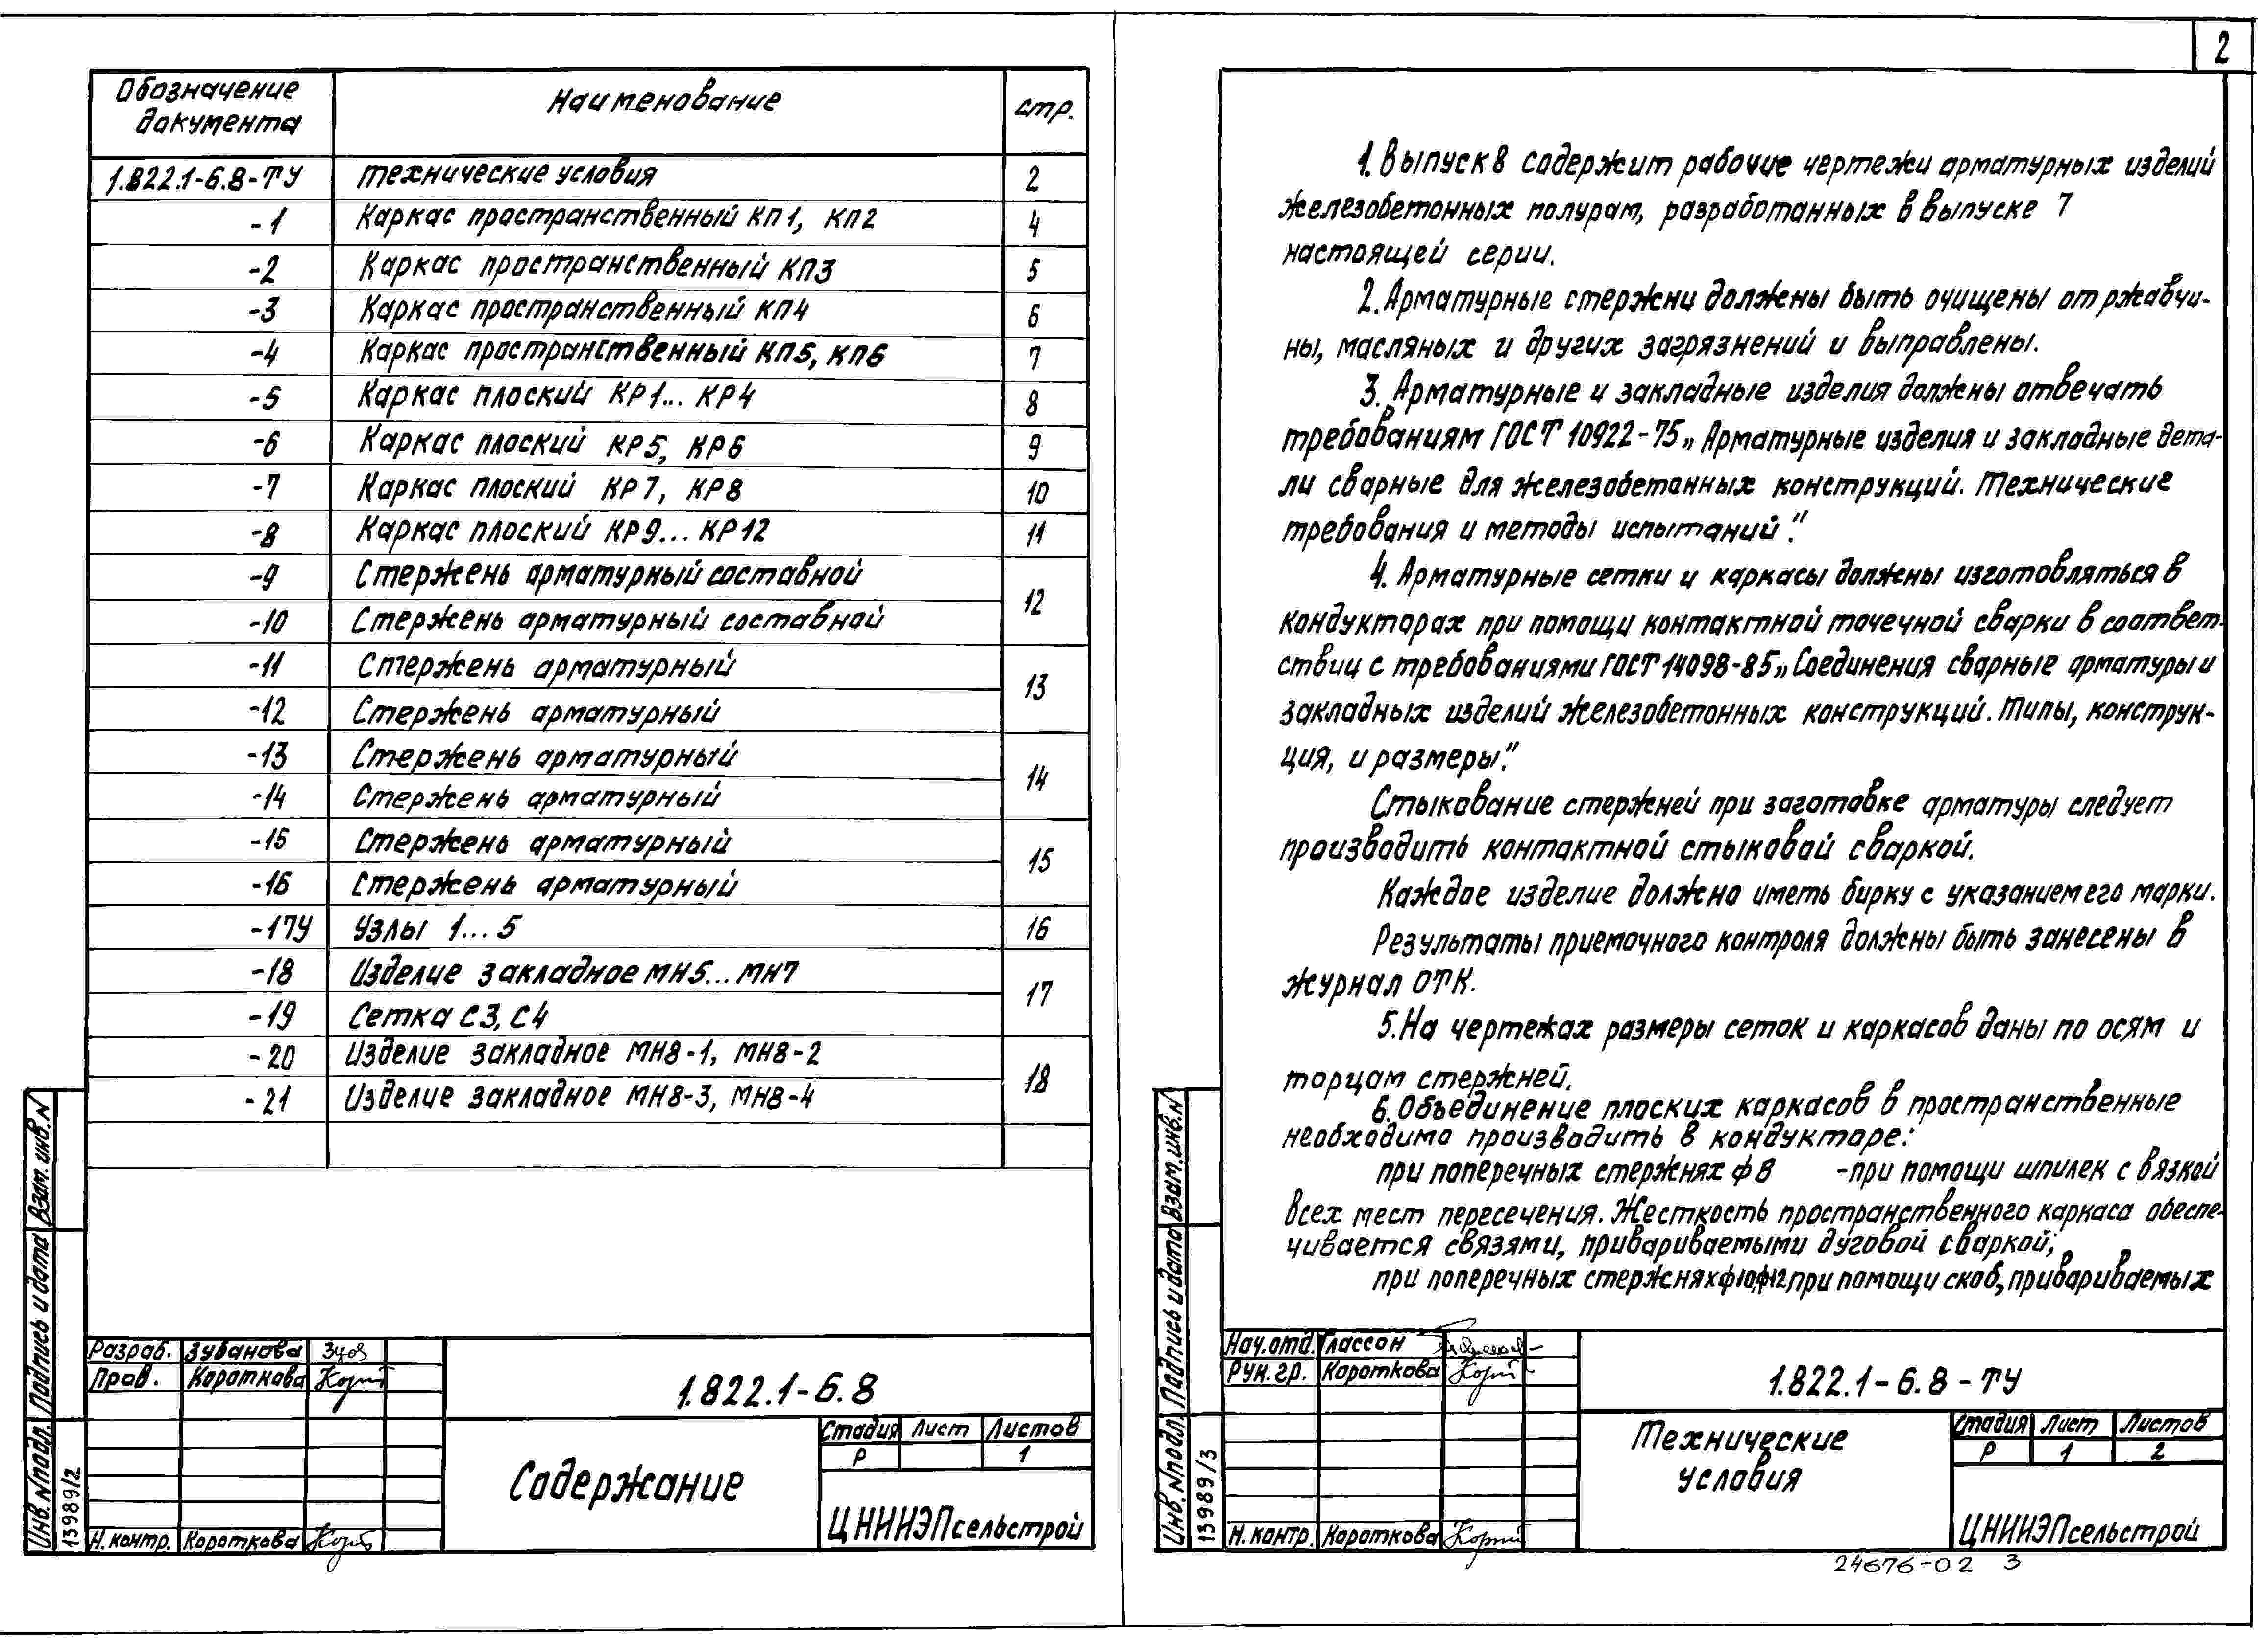 2
Обозначение документа Наименование стр.
1.822.1-6.8-ТУ Технические условия 2
-1 Каркас пространственный КП1, КП2 4
-2 Каркас пространственный КП3 5
-3 Каркас пространственный КП4 6
-4 Каркас пространственный КП5, КП6 7
-5 Каркас плоский КР1... КР4 8
-6 Каркас плоский КР5, КР6 9
-7 Каркас плоский КР7, КР8 10
-8 Каркас плоский КР9... КР12 11
-9 Стержень арматурный составной 12
-10 Стержень арматурный составной
-11 Стержень арматурный 13
-12 Стержень арматурный
-13 Стержень арматурный 14
-14 Стержень арматурный
-15 Стержень арматурный 15
-16 Стержень арматурный
-17У Узлы 1... 5 16
-18 Изделие закладное МН5... МН7 17
-19 Сетка С3, С4
-20 Изделие закладное МН8-1, МН8-2 18
-21 Изделие закладное МН8-3, МН8-4
Взам. инв. N
Подпись и дата
Инв. N подл.
13989/2
Разраб. Зубанова
Пров. Короткова
Н. контр. Короткова
1.822.1-6.8
Содержание
Стадия Лист Листов
Р 1
ЦНИИЭПсельстрой
1. Выпуск 8 содержит рабочие чертежи арматурных изделий
железобетонных полурам, разработанных в выпуске 7
настоящей серии.
2. Арматурные стержни должны быть очищены от ржавчи-
ны, масляных и других загрязнений и выправлены.
3. Арматурные и закладные изделия должны отвечать
требованиям ГОСТ 10922-75 „Арматурные изделия и закладные дета-
ли сварные для железобетонных конструкций. Технические
требования и методы испытаний".
4. Арматурные сетки и каркасы должны изготовляться в
кондукторах при помощи контактной точечной сварки в соответ-
ствии с требованиями ГОСТ 14098-85 „Соединения сварные арматуры и
закладных изделий железобетонных конструкций. Типы, конструк-
ция, и размеры".
Стыкование стержней при заготовке арматуры следует
производить контактной стыковой сваркой.
Каждое изделие должно иметь бирку с указанием его марки.
Результаты приемочного контроля должны быть занесены в
журнал ОТК.
5. На чертежах размеры сеток и каркасов даны по осям и
торцам стержней.
6. Объединение плоских каркасов в пространственные
необходимо производить в кондукторе:
при поперечных стержнях ф 8 -при помощи шпилек с вязкой
всех мест пересечения. Жесткость пространственного каркаса обеспе-
чивается связями, привариваемыми дуговой сваркой;
при поперечных стержнях ф10,ф12,при помощи скоб, привариваемых
Взам. инв. N
Подпись и дата
Инв. N подл.
13989/3
Нач. отд. Глассон
Рук. гр. Короткова
Н. контр. Короткова
1.822.1-6.8-ТУ
Технические
условия
Стадия Лист Листов
Р 1 2
ЦНИИЭПсельстрой
24676-02 3